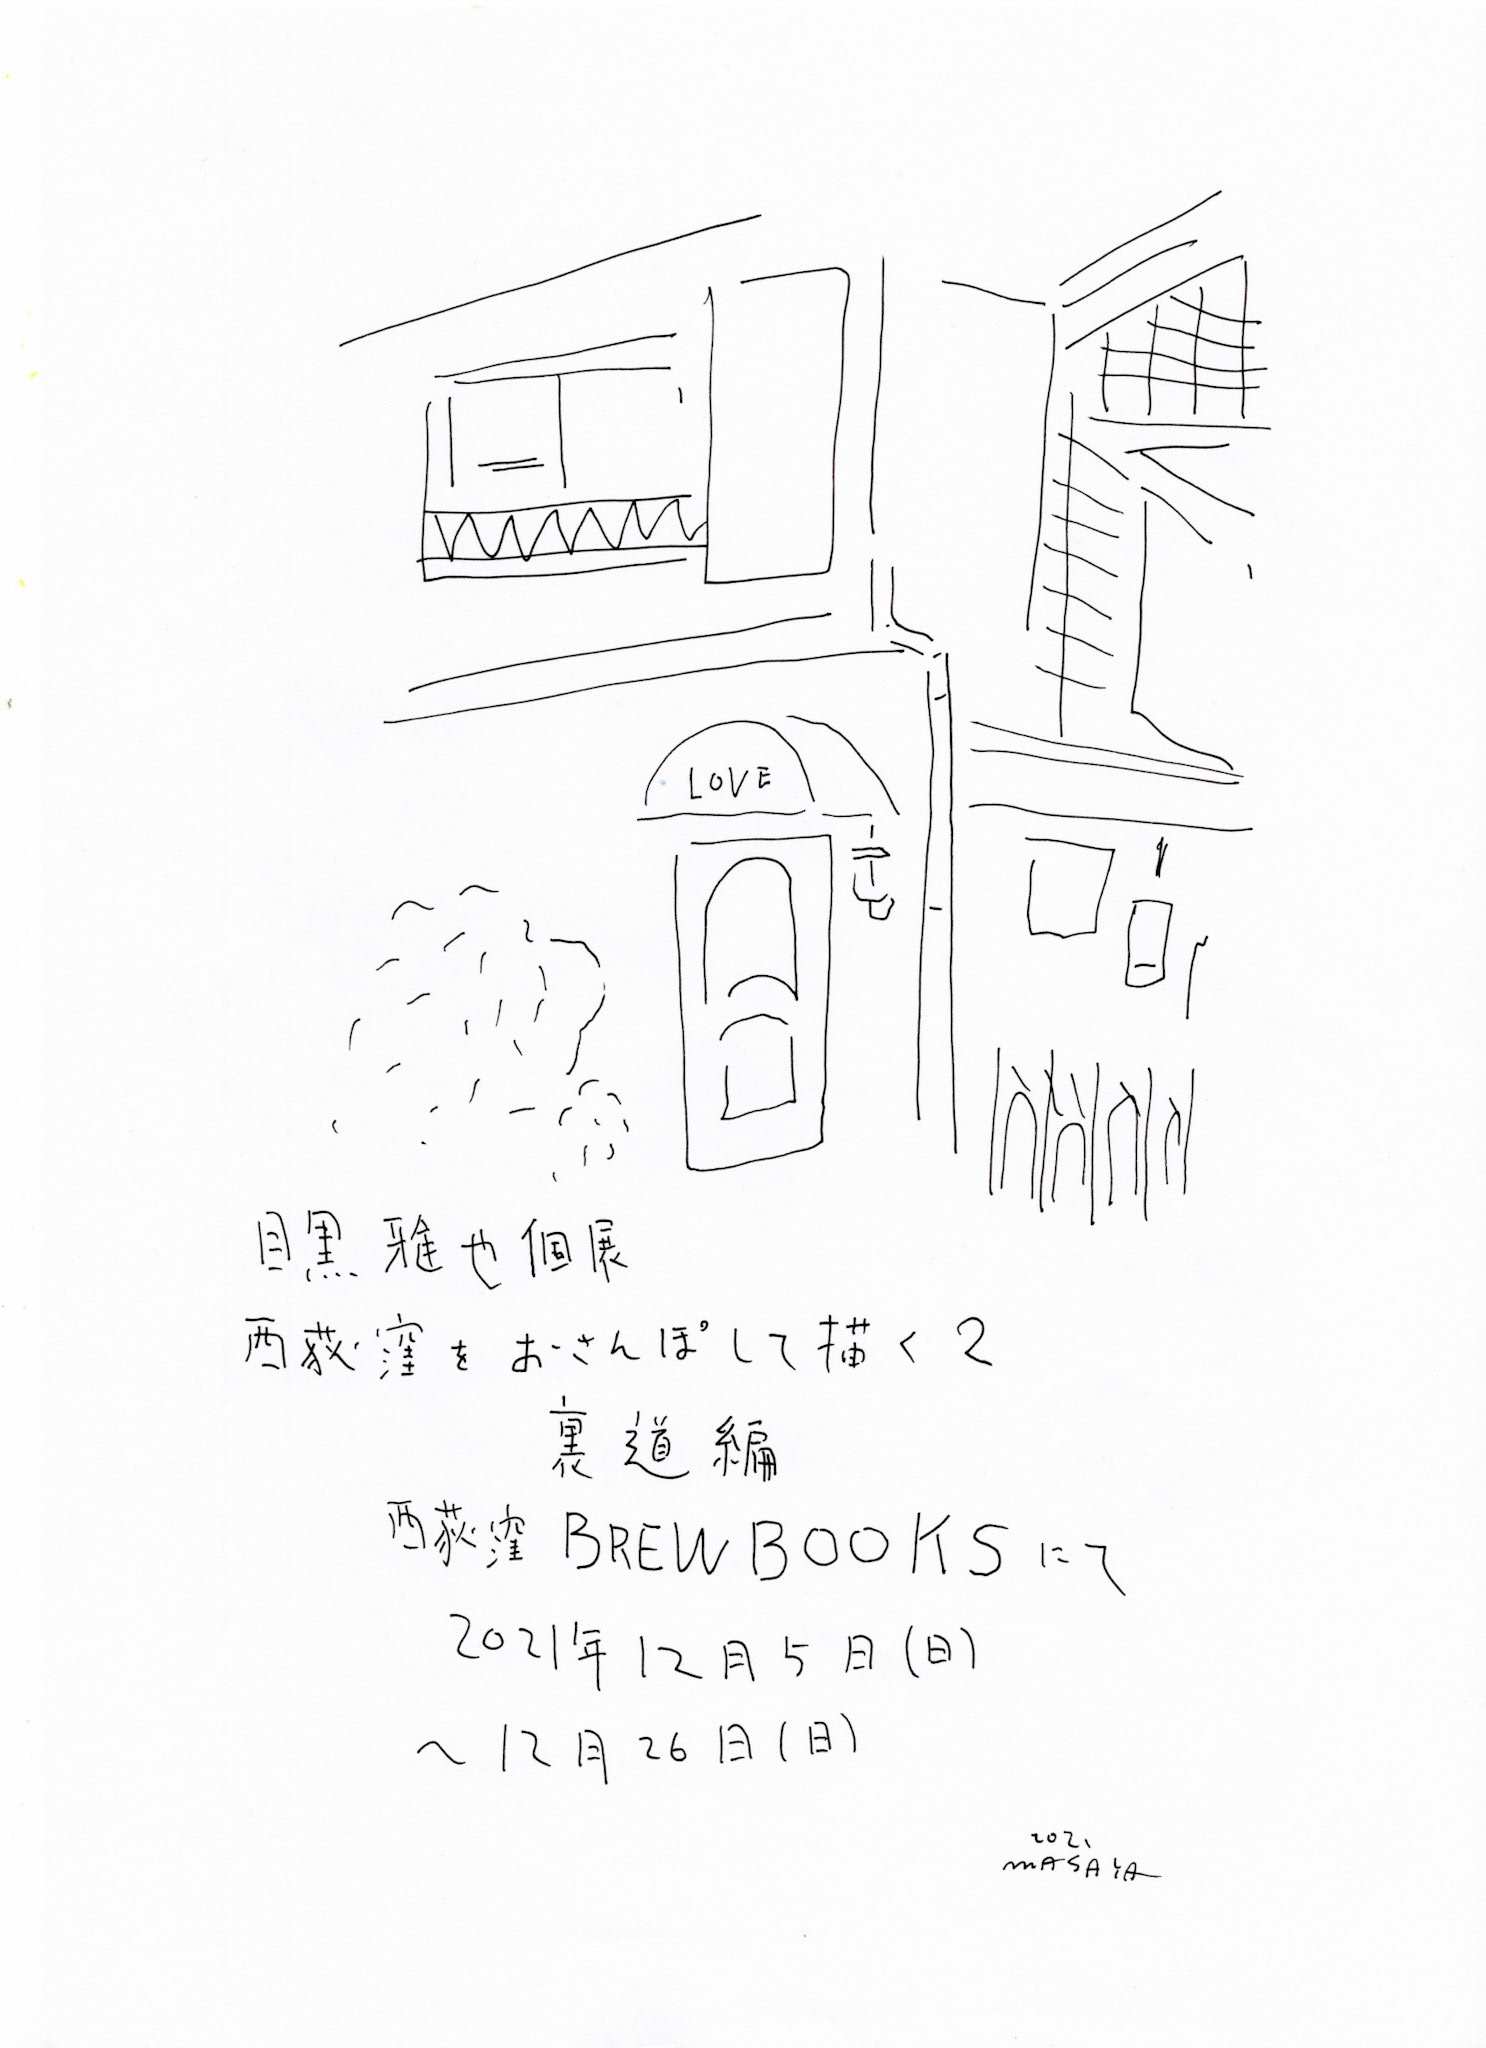 LOVE
目黒雅也個展
西荻窪をおさんぽして描く2
裏道編
西荻窪 BREWBOOKSにて
2021年12月5日(日)
〜12月26日(日)
2021
MASAYA